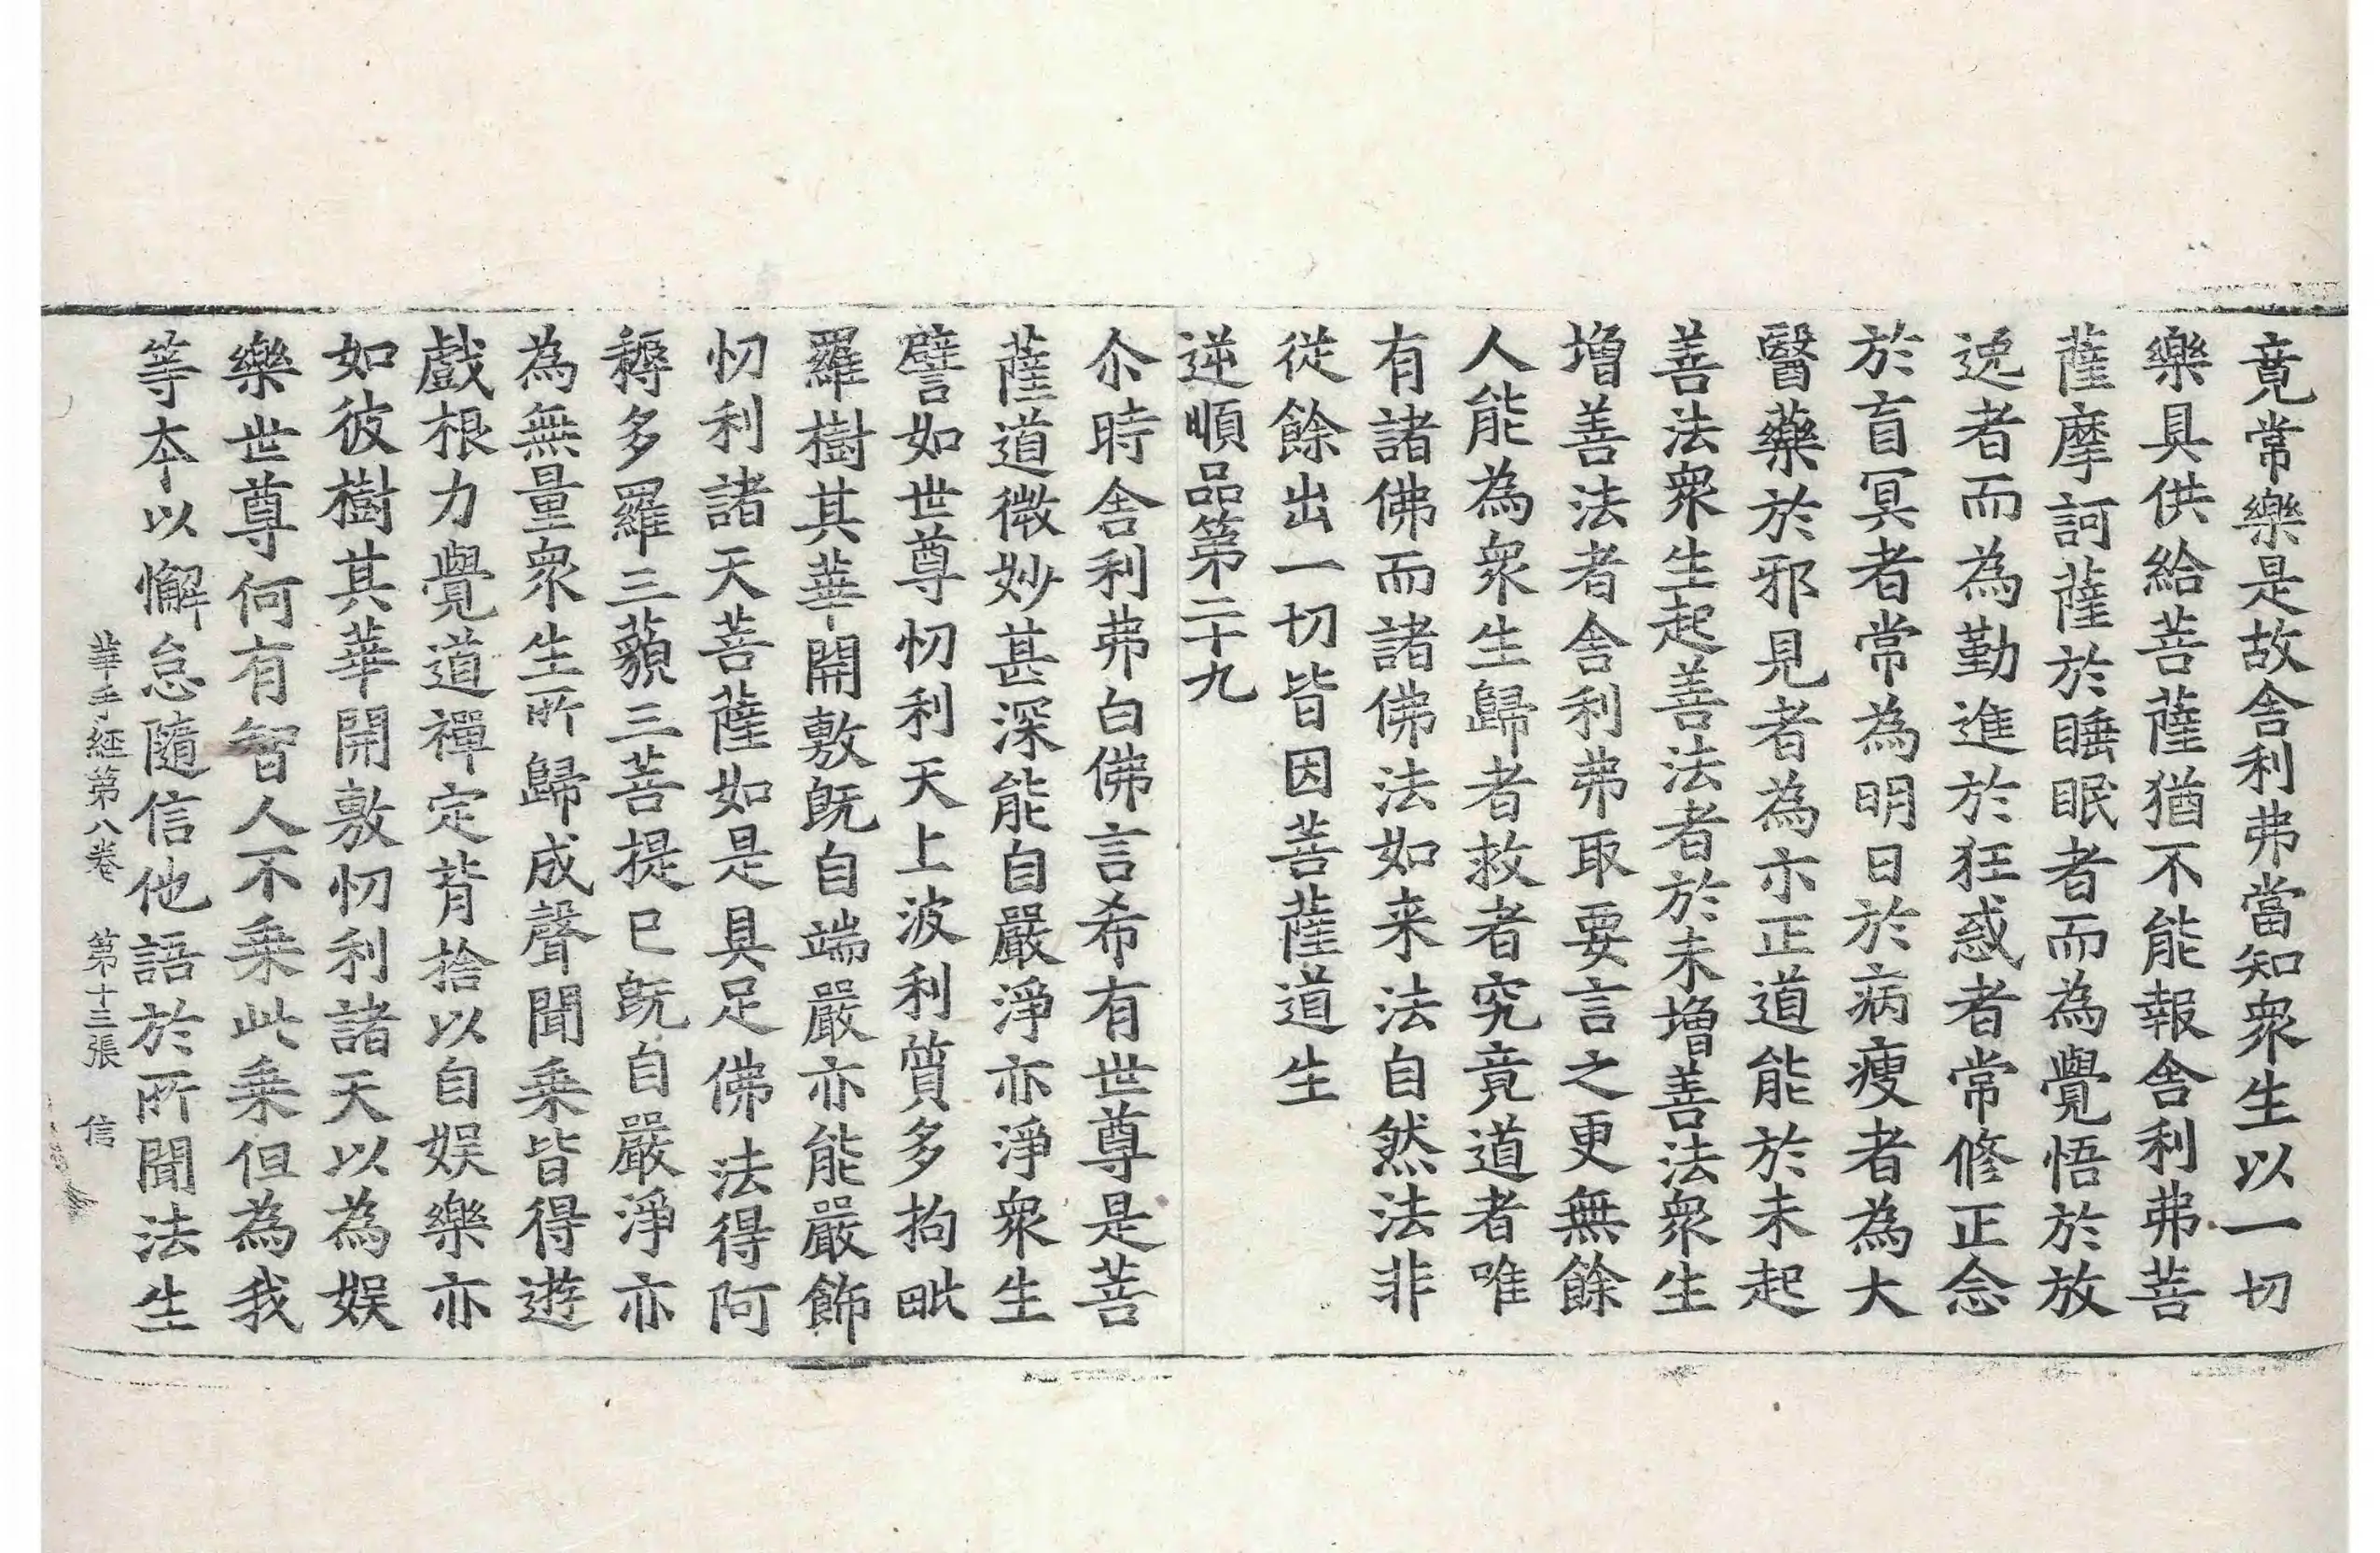 竟常樂是故舍利弗當知衆生以一切
樂具供給菩薩猶不能報舍利弗菩
薩摩訶薩於睡眠者而為覺悟於放
逸者而為勤進於狂惑者常修正念
於盲冥者常為明日於病瘦者為大
醫藥於邪見者為示正道能於未起
善法衆生起善法者於未增善法衆生
增善法者舍利弗取要言之更無餘
人能為衆生歸者救者究竟道者唯
有諸佛而諸佛法如来法自然法非
從餘出一切皆因菩薩道生
逆順品第二十九
尒時舍利弗白佛言希有世尊是菩
薩道微妙甚深能自嚴淨亦淨衆生
譬如世尊忉利天上波利質多拘毗
羅樹其華開敷既自端嚴亦能嚴飾
忉利諸天菩薩如是具足佛法得阿
耨多羅三藐三菩提已既自嚴淨亦
為無量衆生所歸成聲聞乗皆得遊
戲根力覺道禪定背捨以自娱樂亦
如彼樹其華開敷忉利諸天以為娱
樂世尊何有智人不乗此乗但為我
等夲以懈怠隨信他語於所聞法生
華手經第八卷　第十三張　信